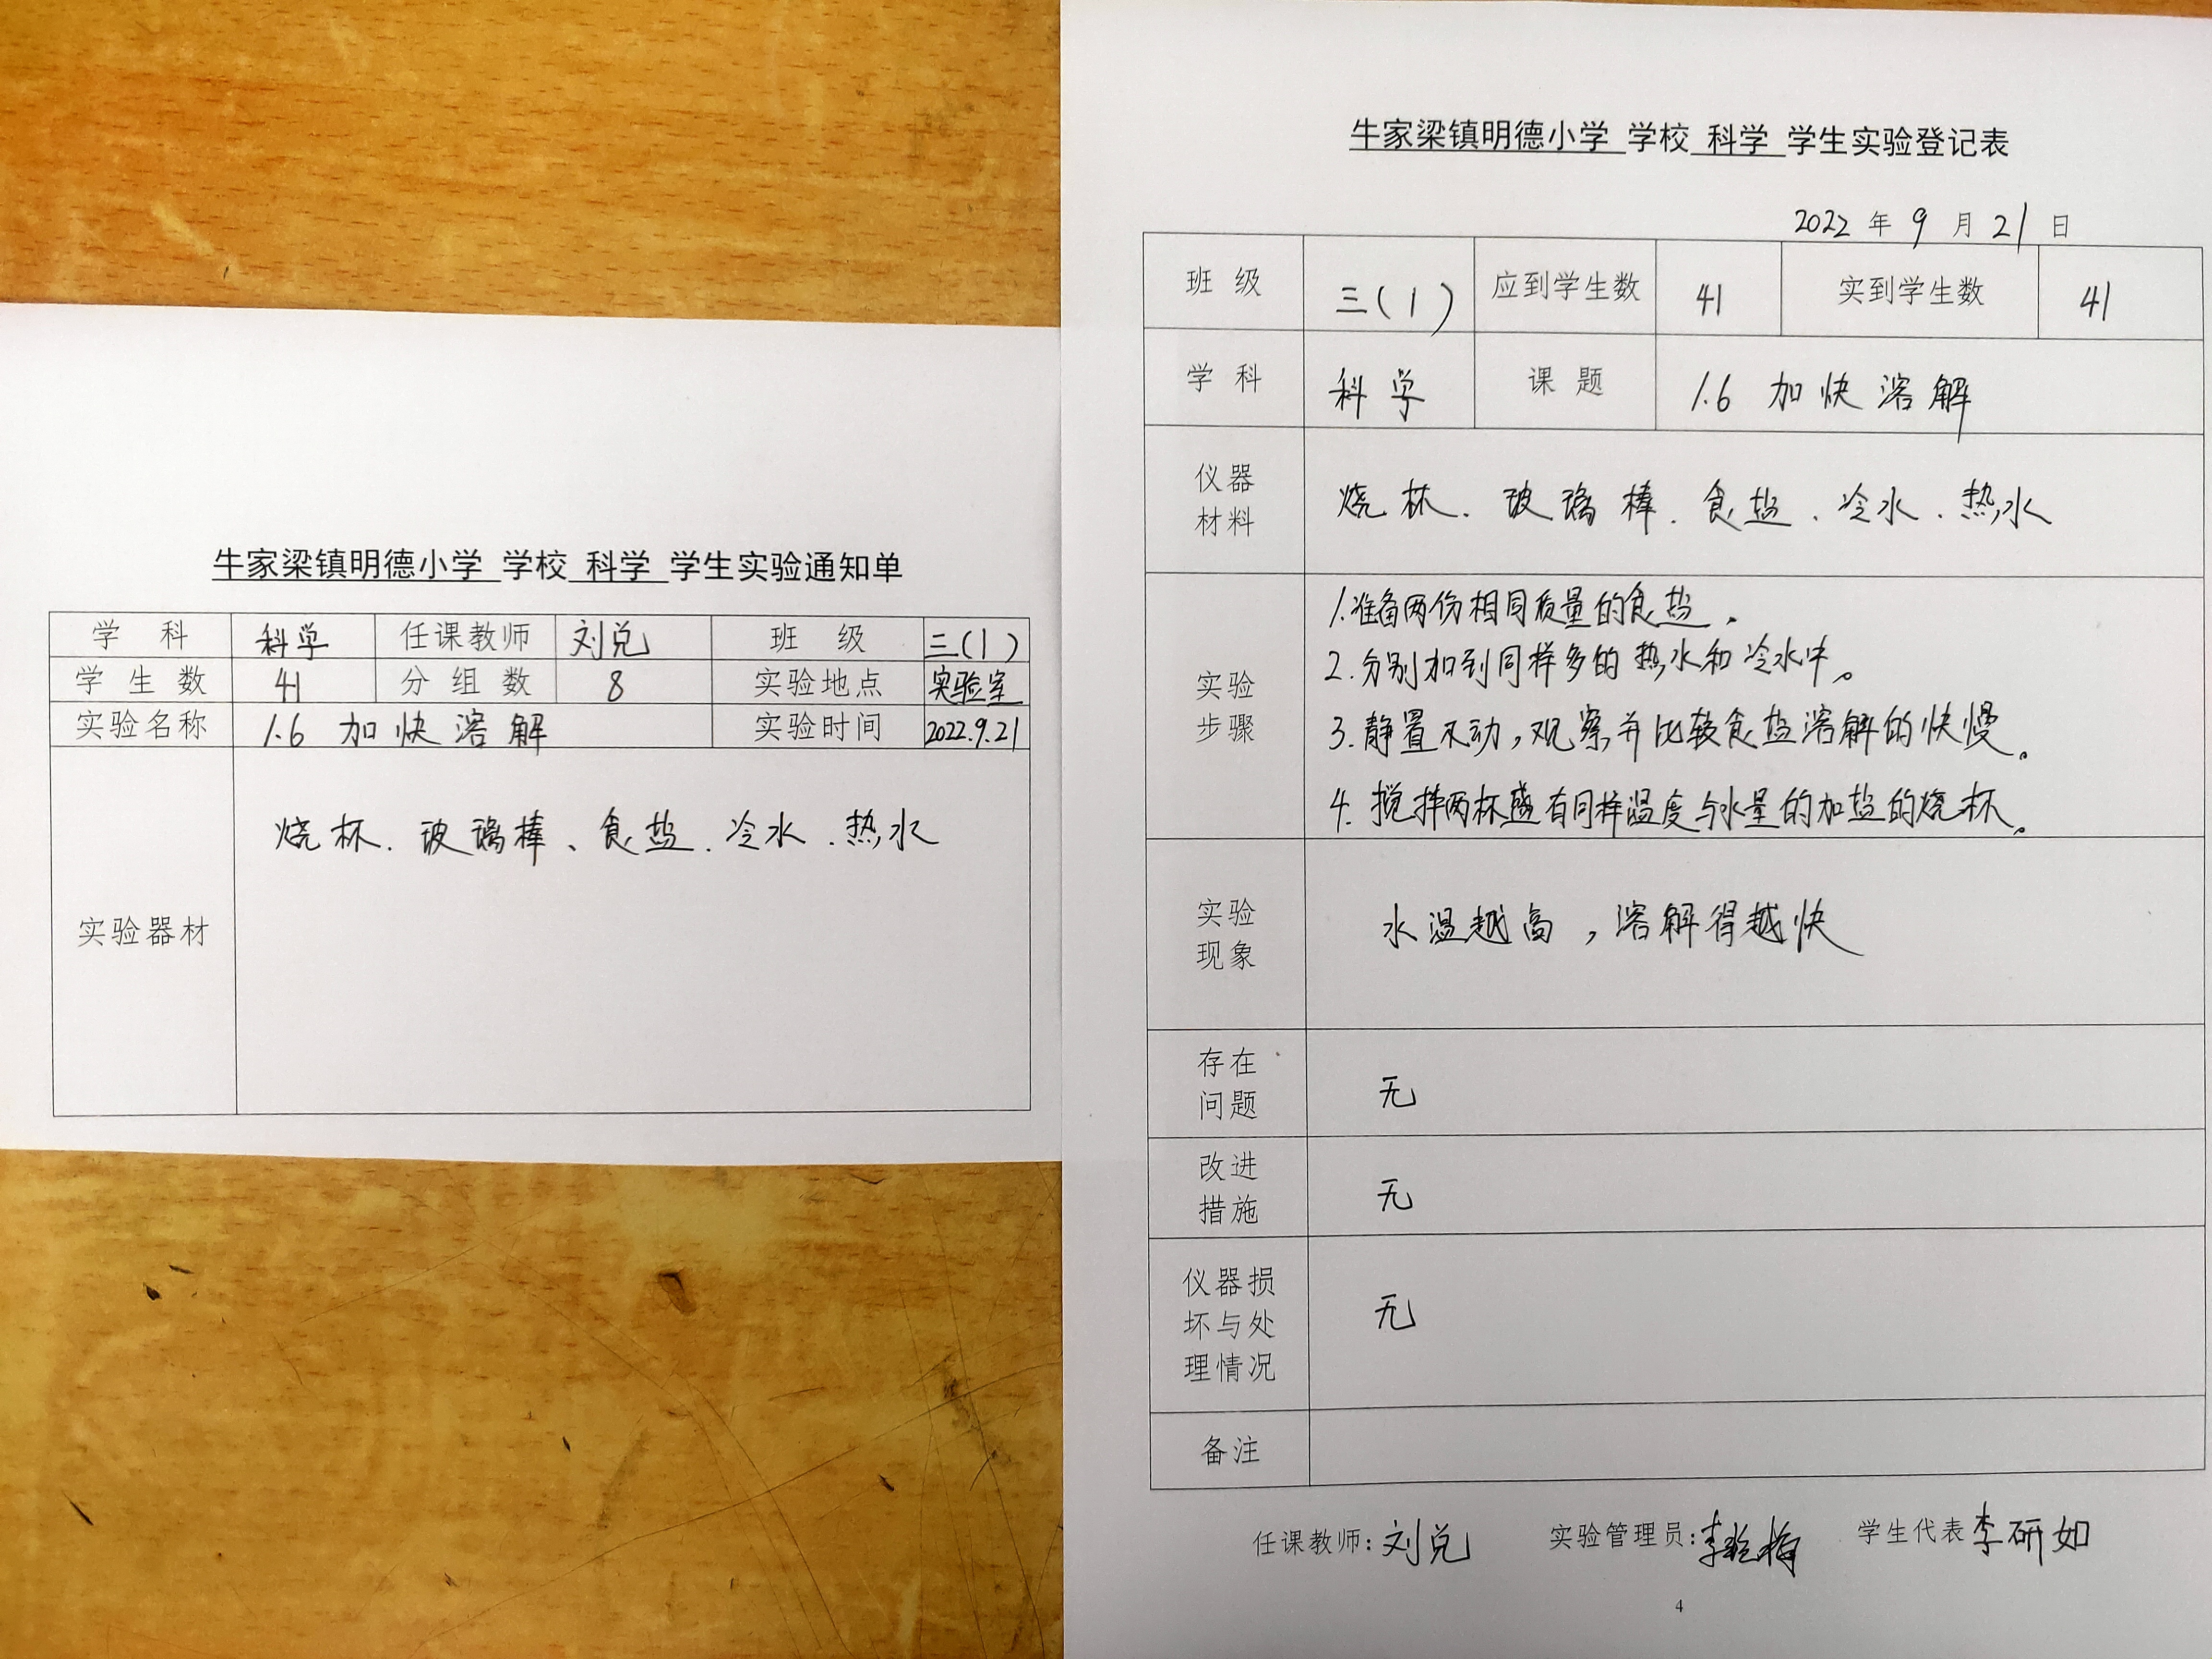 牛家梁镇明德小学 学校 科学 学生实验通知单
学 科 科学 任课教师 刘兑 班 级 三(1)
学 生 数 41 分 组 数 8 实验地点 实验室
实验名称 1.6 加快溶解 实验时间 2022.9.21
烧杯、玻璃棒、食盐、冷水、热水
实验器材
牛家梁镇明德小学 学校 科学 学生实验登记表
2022 年 9 月 21 日
班 级 三(1) 应到学生数 41 实到学生数 41
学 科 科学 课 题 1.6 加快溶解
仪器
材料
烧杯、玻璃棒、食盐、冷水、热水
实验
步骤
1.准备两份相同质量的食盐。
2.分别加到同样多的热水和冷水中。
3.静置不动,观察并比较食盐溶解的快慢。
4.搅拌两杯盛有同样温度与水量的加盐的烧杯。
实验
现象
水温越高,溶解得越快
存在
问题
无
改进
措施
无
仪器损
坏与处
理情况
无
备注
任课教师:刘兑 实验管理员:李 学生代表李研如
4